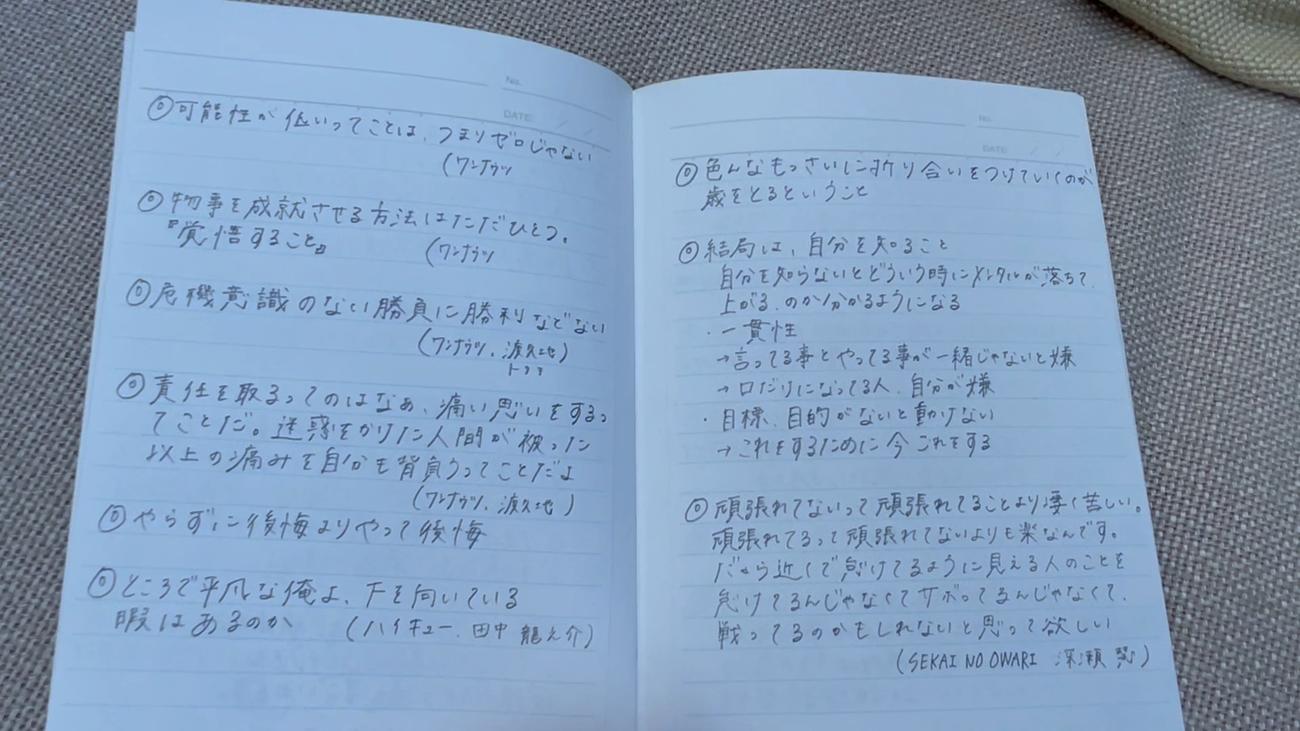 No.
DATE
◎可能性が低いってことは、つまりゼロじゃない
(ワンナウツ
◎物事を成就させる方法はただひとつ。
『覚悟すること』 (ワンナウツ
◎危機意識のない勝負に勝利などない
(ワンナウツ、渡久地)
トクチ
◎責任を取るってのはなぁ、痛い思いをするっ
てことだ。迷惑をかけた人間が被った
以上の痛みを自分も背負うってことだよ
(ワンナウツ、渡久地)
◎やらずに後悔よりやって後悔
◎ところで平凡な俺よ、下を向いている
暇はあるのか (ハイキュー、田中 龍之介)
No.
DATE
◎色んなもっさいに折り合いをつけていくのが
歳をとるということ
◎結局は、自分を知ること
自分を知らないとどういう時にメンタルが落ちて、
上がる、のか分かるようになる
・一貫性
→言ってる事とやってる事が一緒じゃないと嫌
→口だけになってる人、自分が嫌
・目標、目的がないと動けない
→これをするために今これをする
◎頑張れてないって頑張れてることより凄く苦しい。
頑張れてるって頑張れてないよりも楽なんです。
だから近くで怠けてるように見える人のことを
怠けてるんじゃなくてサボってるんじゃなくて、
戦ってるのかもしれないと思って欲しい
(SEKAI NO OWARI 深瀬 慧)